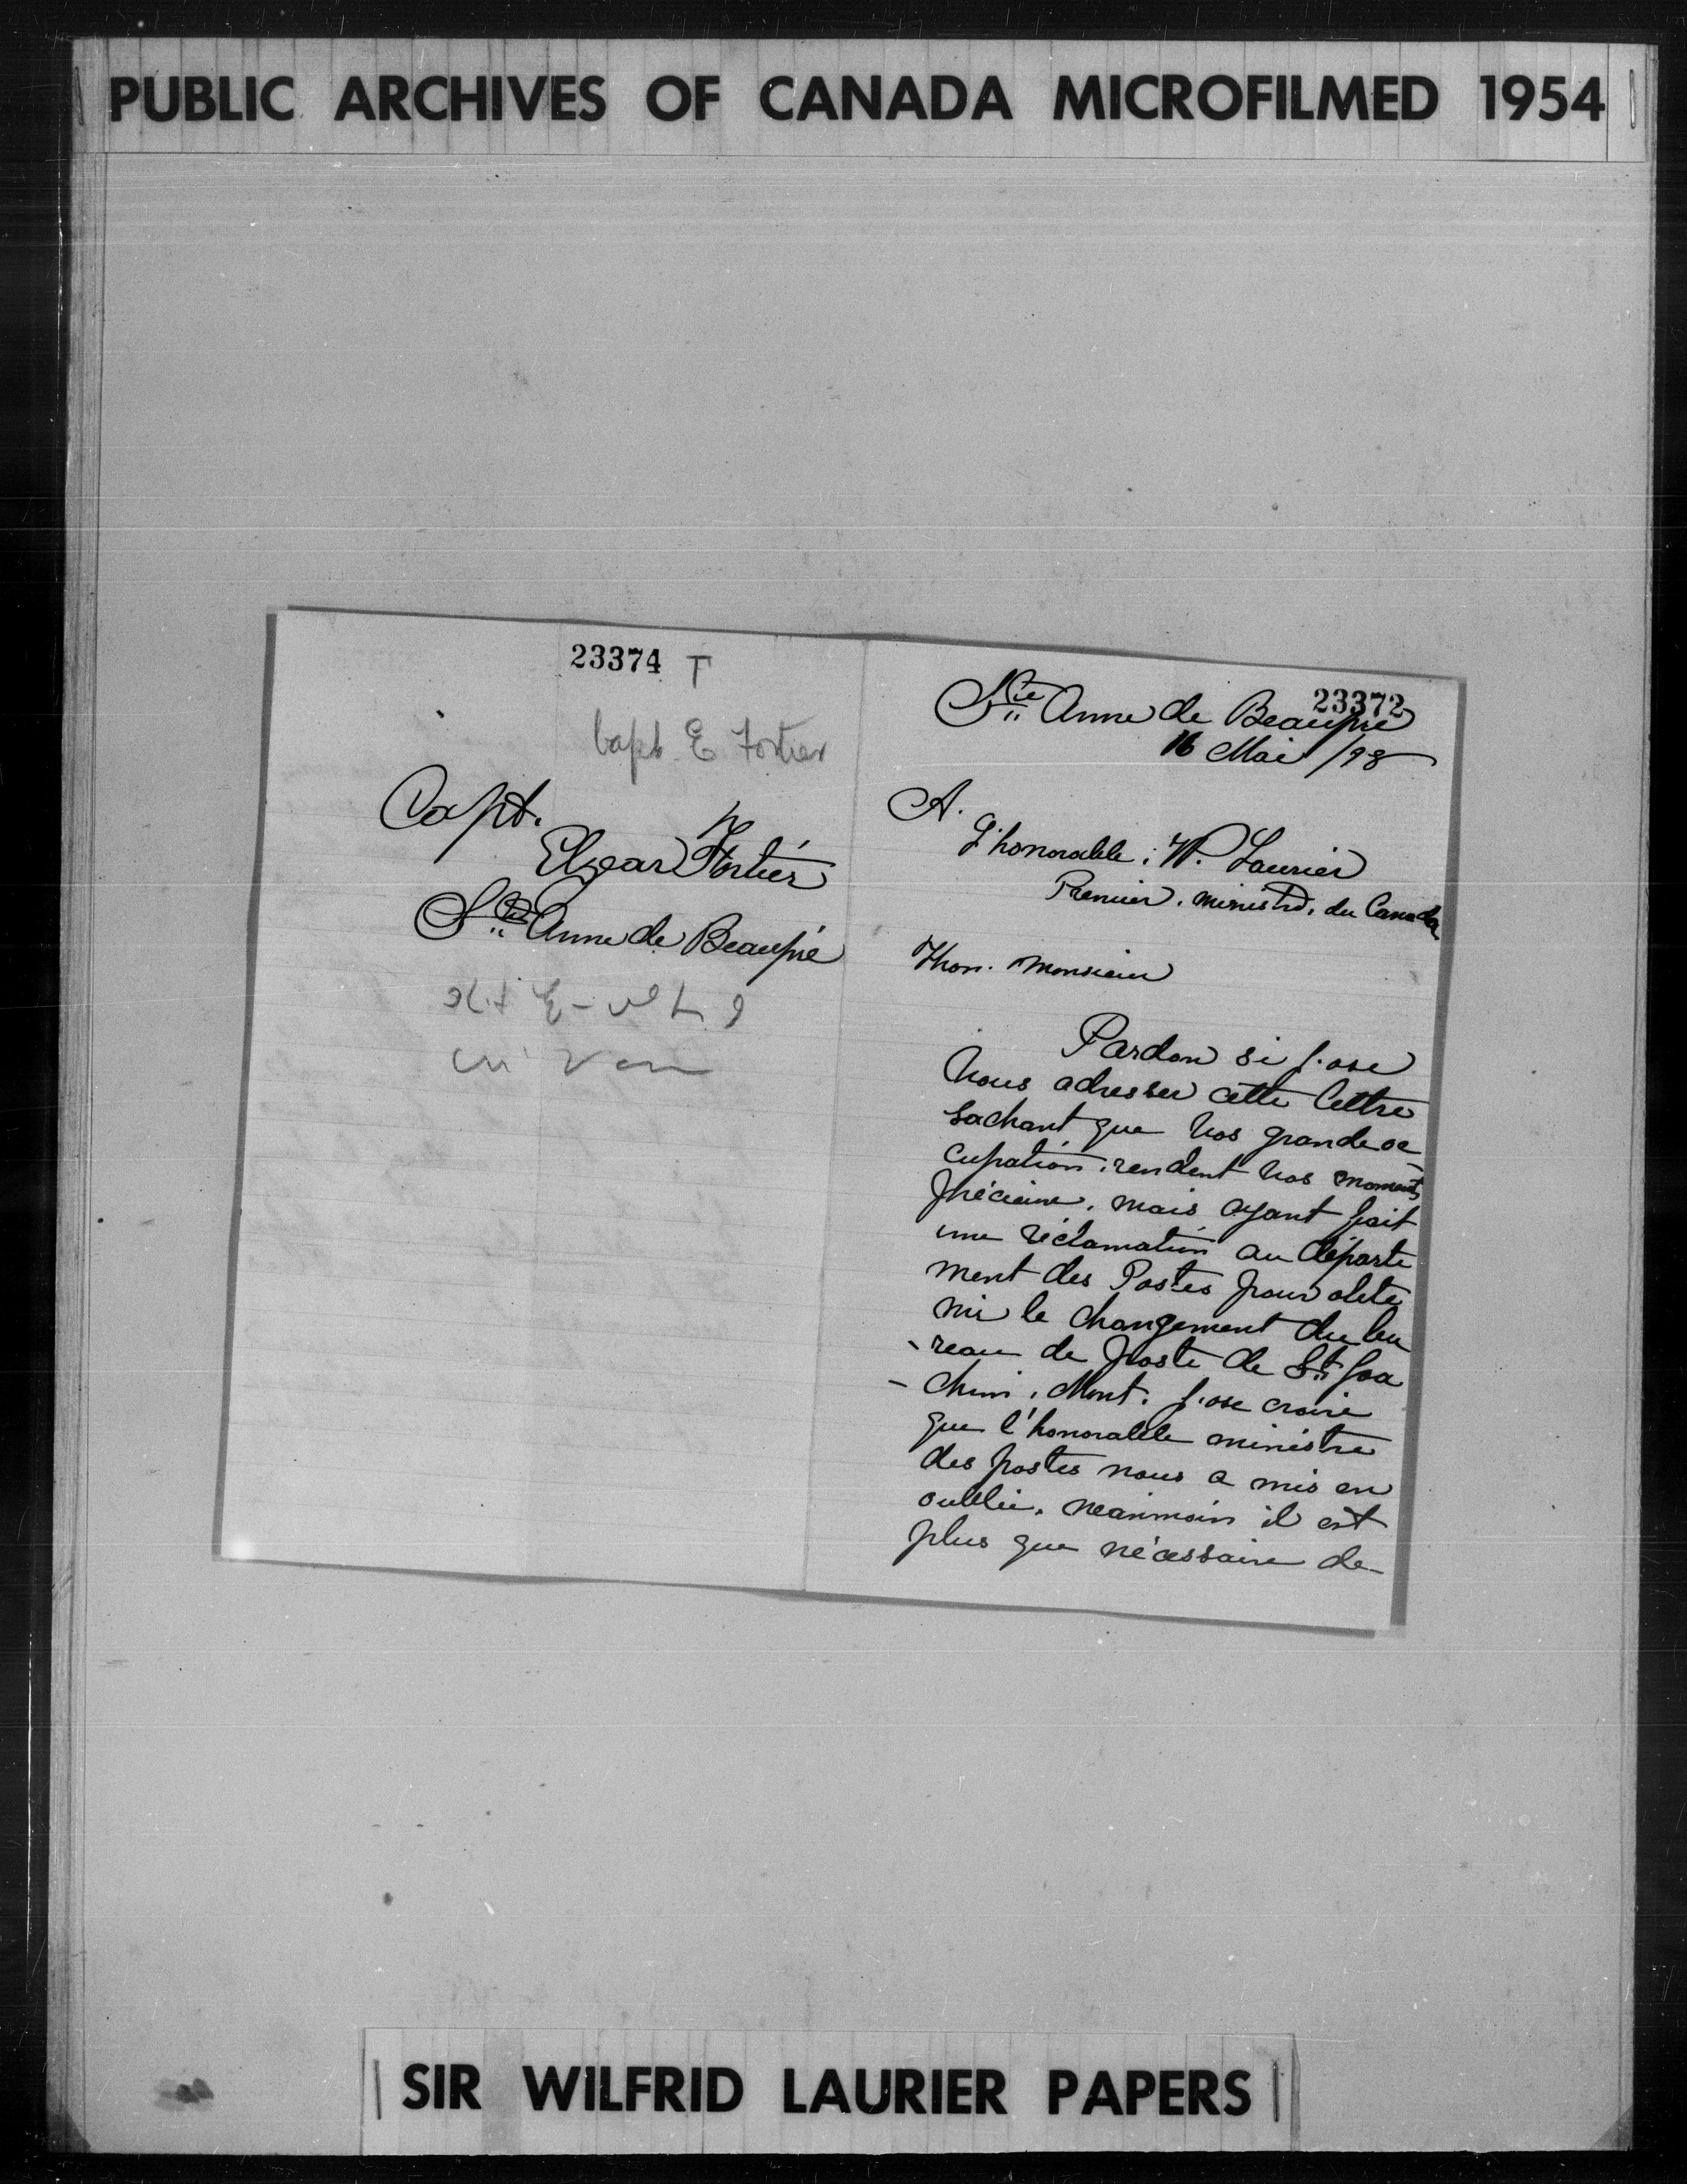 PUBLIC ARCHIVES OF CANADA MICROFILMED 1954
23374 T
Capt. E Fortier
Capt.
Elzear Fortier
Ste Anne de Beaupré
23372
Ste Anne de Beaupré
16 Mai /98
A.
L'honorable: W. Laurier
Premier. ministre. du Canada
Hon. Monsieur
Pardon si j'ose
Vous adresser cette lettre
Sachant que Vos grande oc
cupation. rendent Vos moments
précieux. mais ayant fait
une réclamation au départe
ment des Postes pour obte
nir le changement du bu
-reau de poste de St Joa
-chim. Mont. j'ose croire
que l'honorable ministre
des postes nous a mis en
oublie. neanmoin il est
plus que nécessaire de
SIR WILFRID LAURIER PAPERS